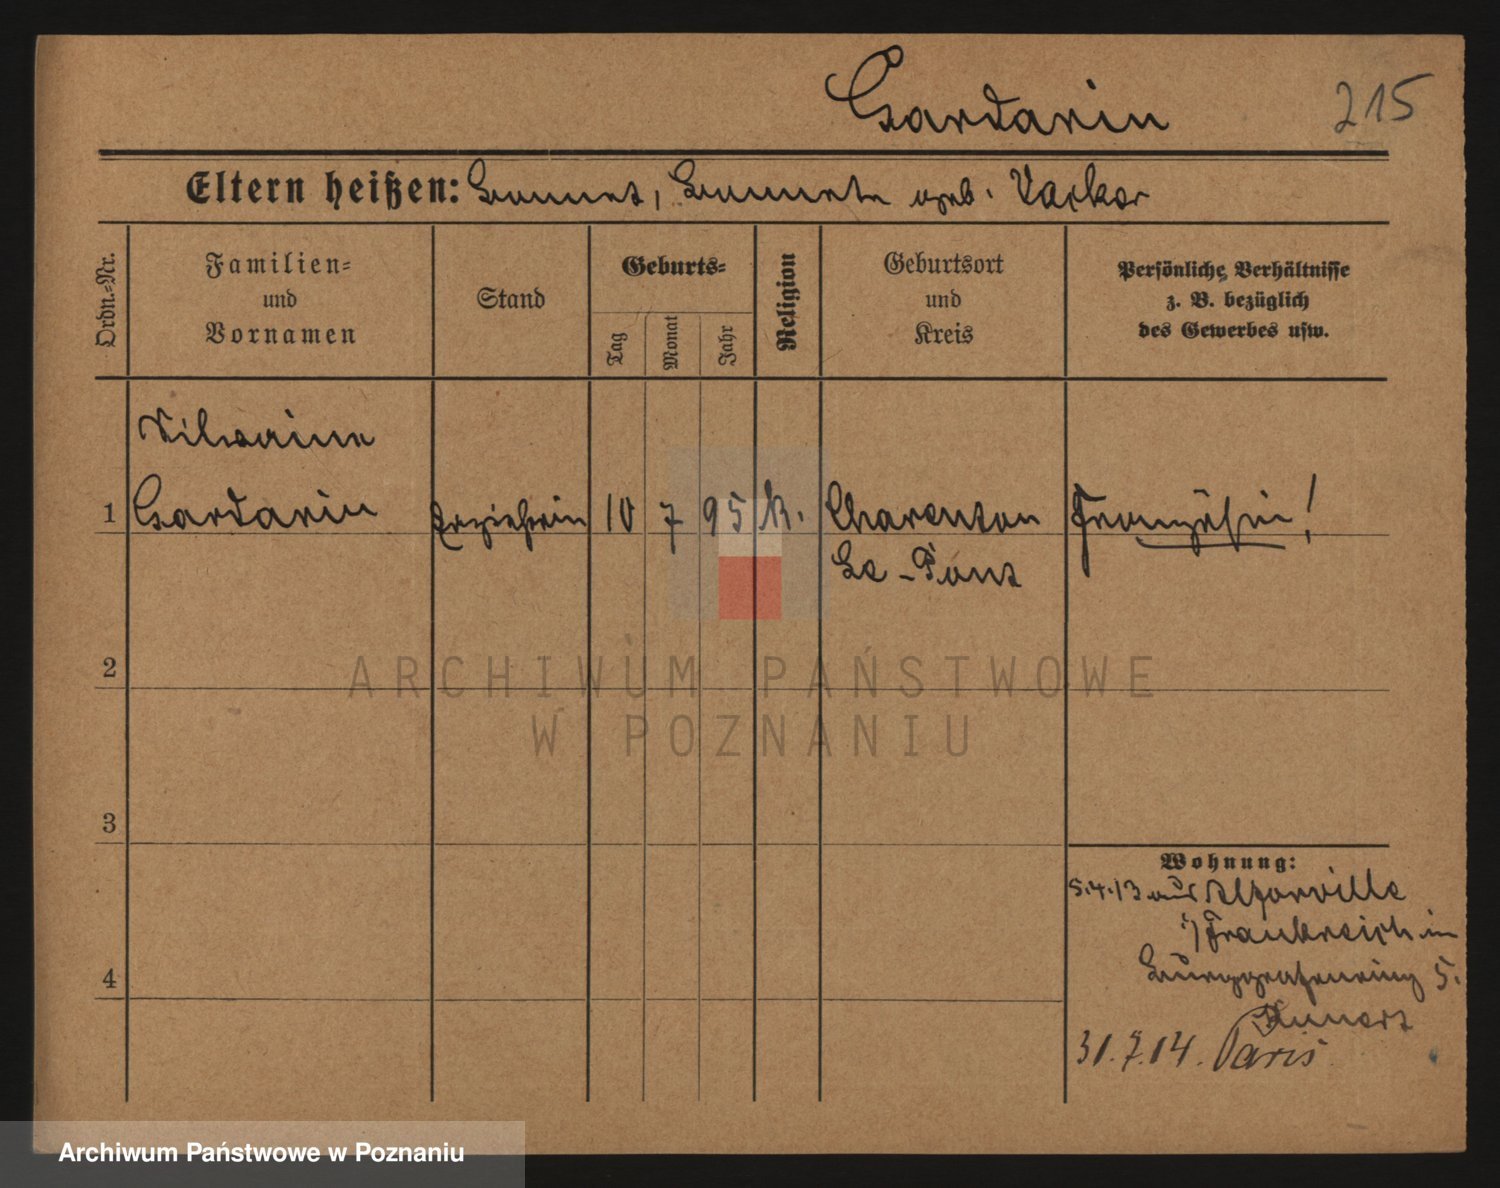 Gardarin
215
Eltern heißen: geb.
Ordn.-Nr.
Familien-
und
Vornamen
Stand
Geburts-
Tag
Monat
Jahr
Religion
Geburtsort
und
Kreis
Persönliche Verhältnisse
z. B. bezüglich
des Gewerbes usw.
1
Gardarin
Erzieherin
10
7
95
k.
Charenton
Le-Pont
Französin!
2
3
4
Wohnung:
5.4.13 aus Alforville
i/Frankreich in
Burggrafenring 5.
Kunert
31.7.14. Paris
ARCHIWUM PAŃSTWOWE
W POZNANIU
Archiwum Państwowe w Poznaniu